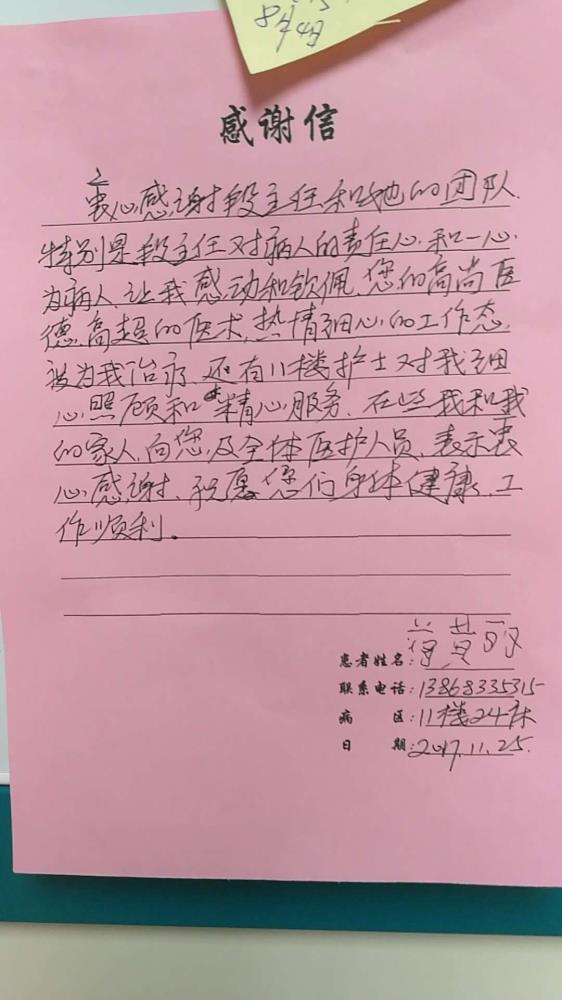 8月4日
感谢信
衷心感谢段主任和她的团队.
特别是段主任对病人的责任心.和一心
为病人.让我感动和钦佩.您的高尚医
德.高超的医术.热情细心的工作态.
为我治疗.还有11楼护士对我细
心照顾和精心服务.在此我和我
的家人.向您.及全体医护人员.表示衷
心感谢.祝愿您们身体健康.工
作顺利。
患者姓名:黄
联系电话:13868335315
病区:11楼24床
日期:2017.11.25.